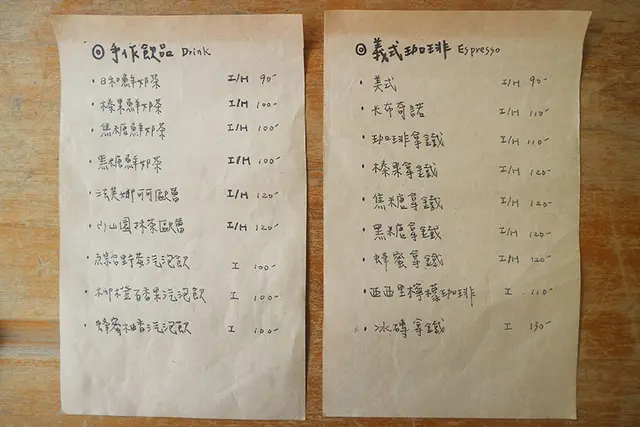 ◎手作飲品 Drink
・日和鮮奶茶 I/H 90-
・榛果鮮奶茶 I/H 100-
・焦糖鮮奶茶 I/H 100-
・黑糖鮮奶茶 I/H 100-
・法芙娜可可歐蕾 I/H 120-
・小山園抹茶歐蕾 I/H 120-
野莓汽泡飲 I 100-
・柳橙百香果汽泡飲 I 100-
・蜂蜜柚香汽泡飲 I 100-
◎義式珈琲 Espresso
・美式 I/H 90-
・卡布奇諾 I/H 110-
・珈琲拿鐵 I/H 110-
・榛果拿鐵 I/H 120-
・焦糖拿鐵 I/H 120-
・黑糖拿鐵 I/H 120-
・蜂蜜拿鐵 I/H 120-
・西西里檸檬珈琲 I 110-
・冰磚拿鐵 I 130-